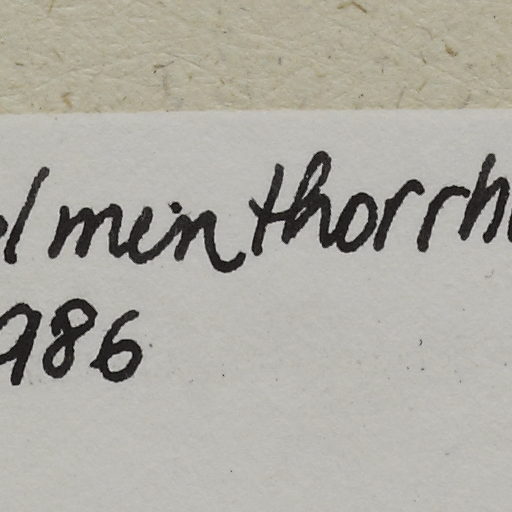 elmin thorrh
986